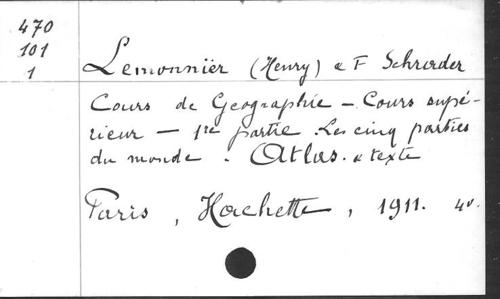 470
101
1
Lemonnier (Henry) & F Schrader
Cours de Geographie - Cours supé-
rieur - 1re partie . Les cinq parties
du monde . Atlas. & texte
Paris , Hachette , 1911. 4o.